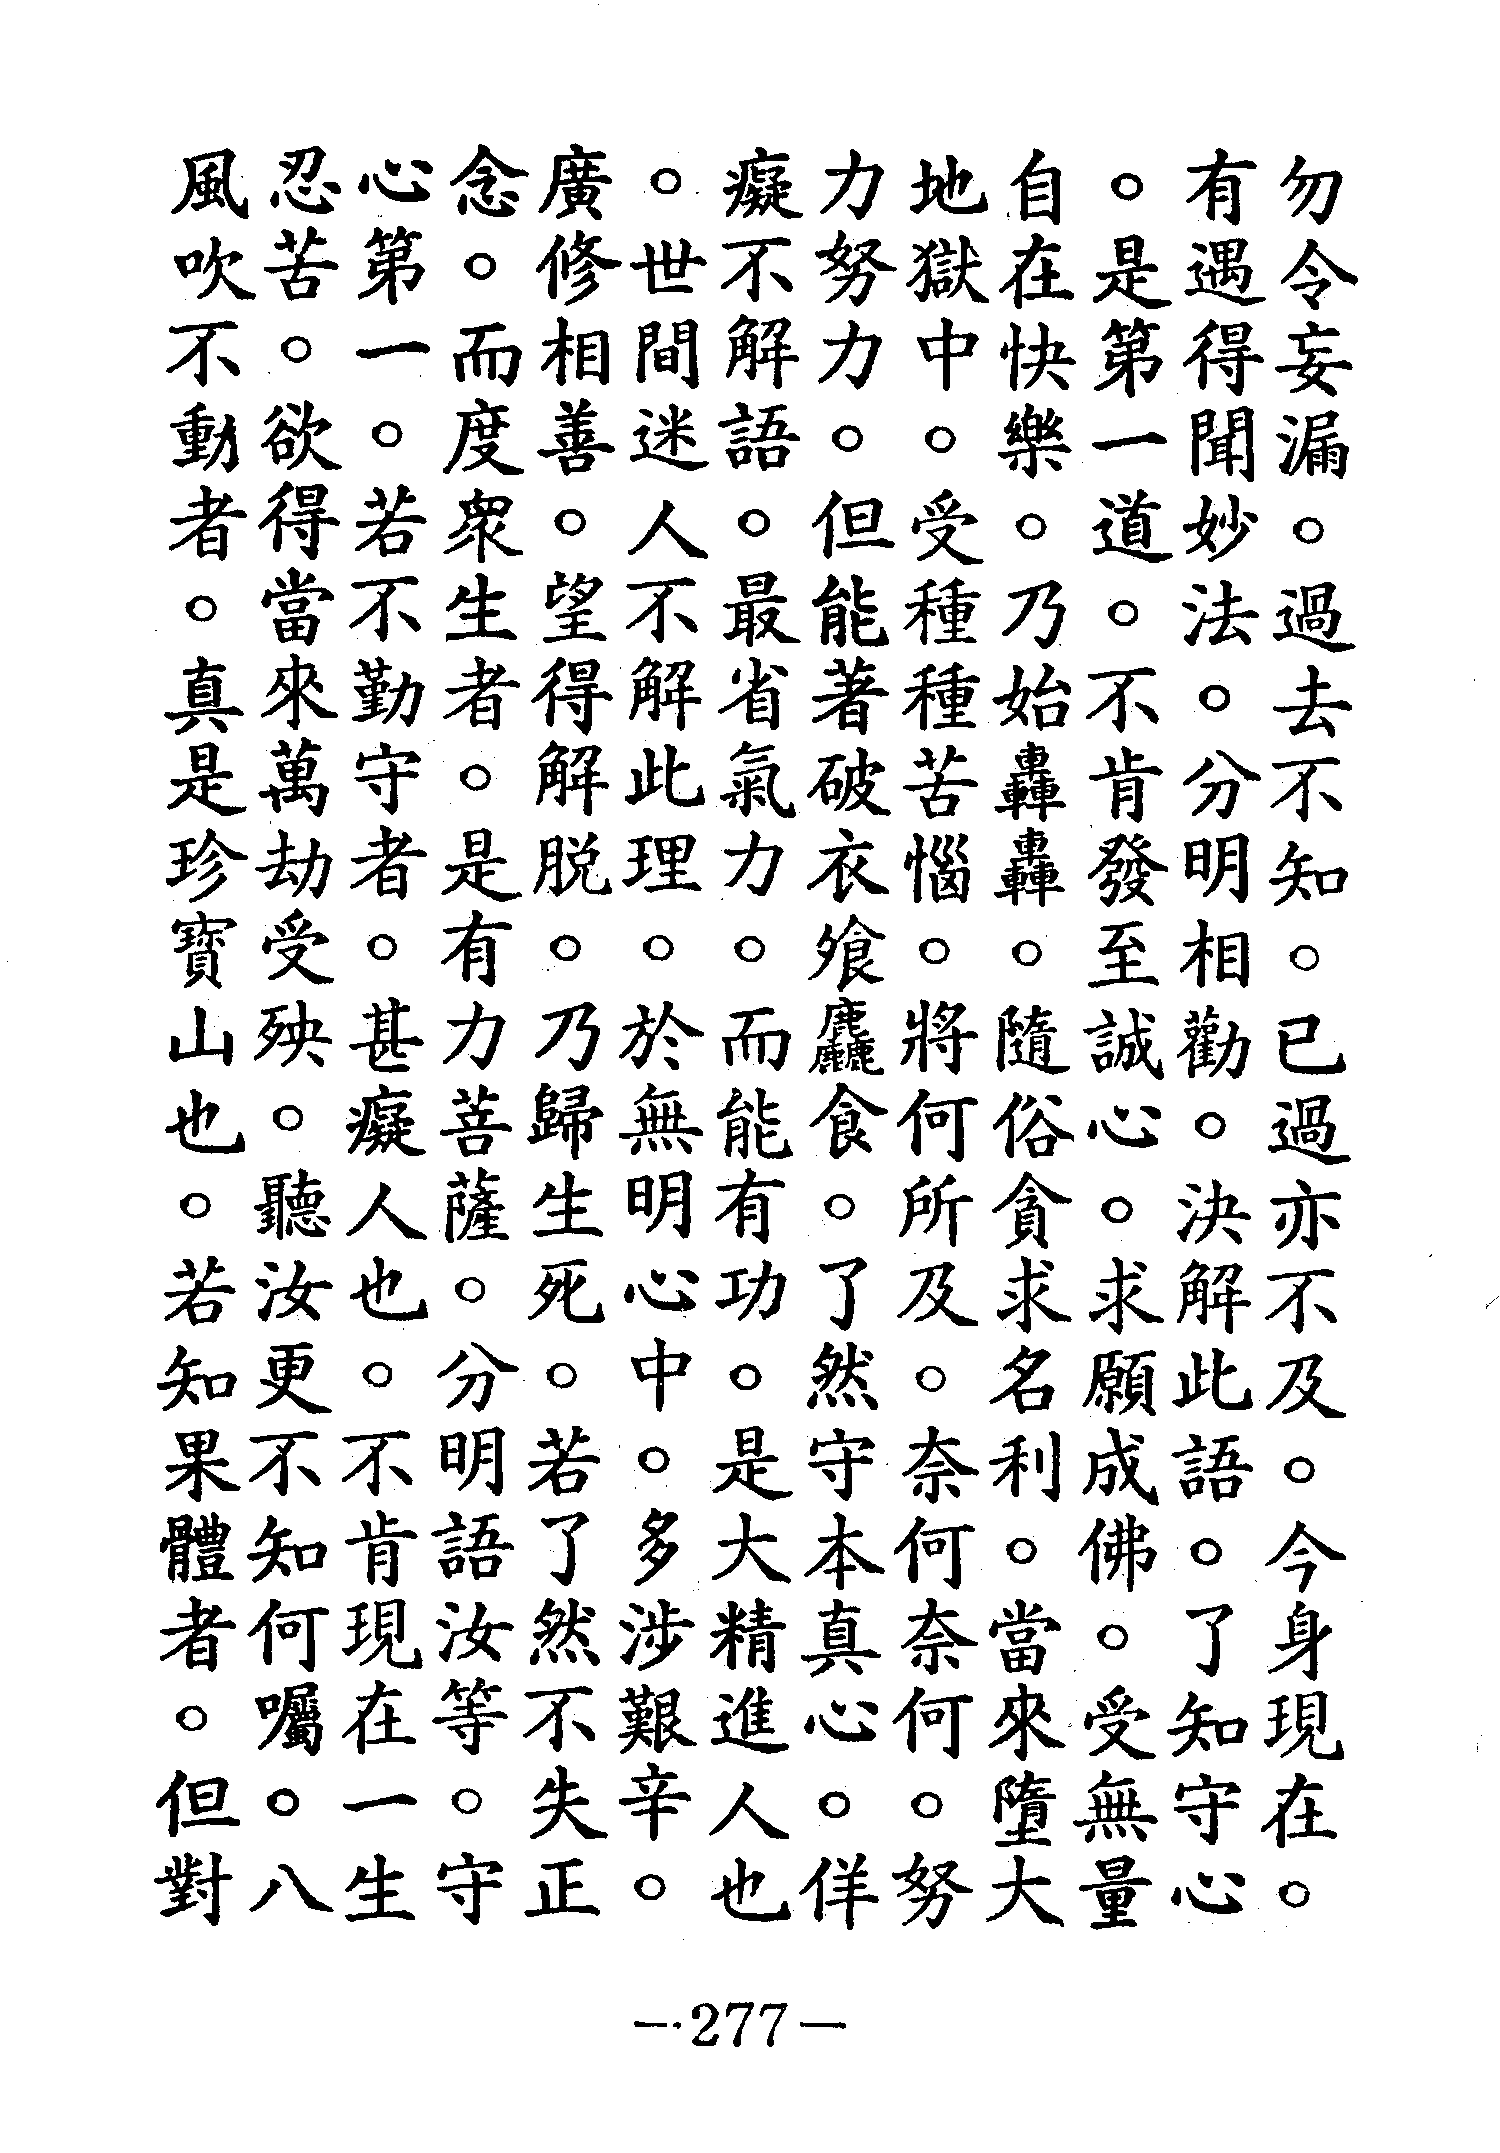 勿令妄漏。過去不知。已過亦不及。今身現在。
有遇得聞妙法。分明相勸。決解此語。了知守心
。是第一道。不肯發至誠心。求願成佛。受無量
自在快樂。乃始轟轟。隨俗貪求名利。當來墮大
地獄中。受種種苦惱。將何所及。奈何奈何。努
力努力。但能著破衣飡麤食。了然守本真心。佯
癡不解語。最省氣力。而能有功。是大精進人也
。世間迷人不解此理。於無明心中。多涉艱辛。
廣修相善。望得解脱。乃歸生死。若了然不失正
念。而度眾生者。是有力菩薩。分明語汝等。守
心第一。若不勤守者。甚癡人也。不肯現在一生
忍苦。欲得當來萬劫受殃。聽汝更不知何囑。八
風吹不動者。真是珍寶山也。若知果體者。但對
—277—